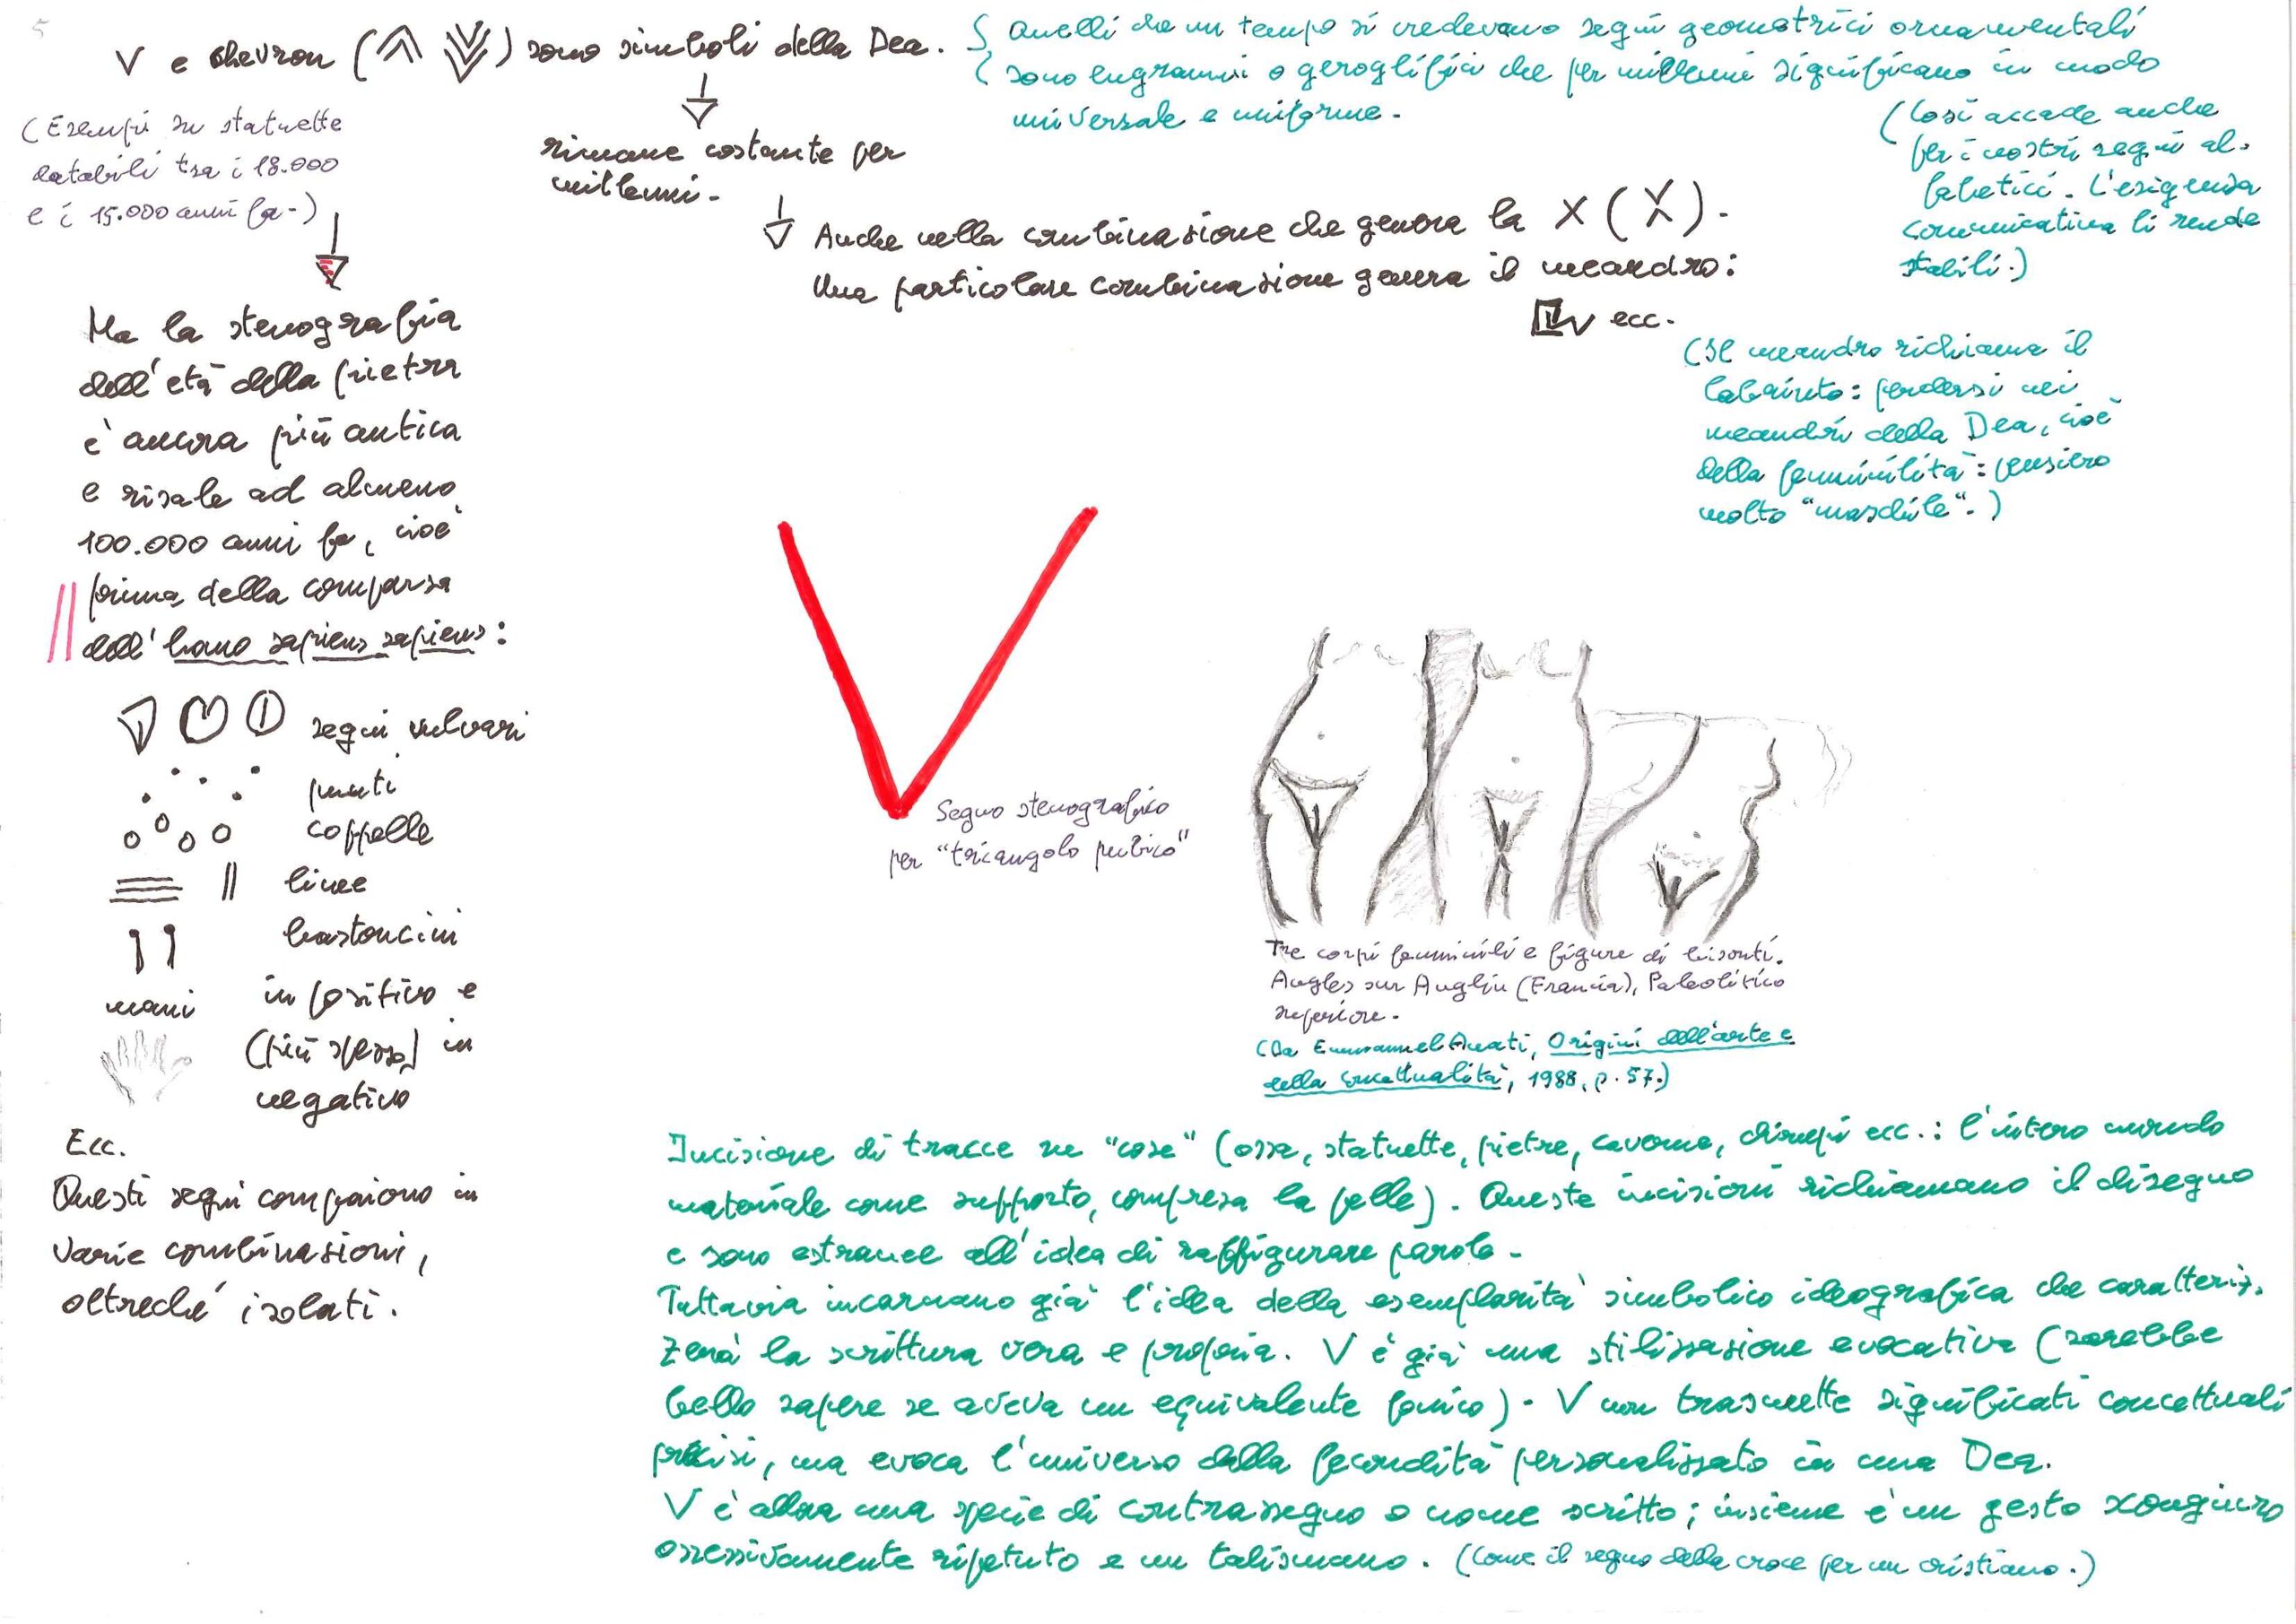 5
V e chevron ( ) sono simboli della Dea.
(Esempi su statuette
databili tra i 18.000
e i 15.000 anni fa-)
rimane costante per
millenni-
Quelli che un tempo si credevano segni geometrici ornamentali
sono engrammi o geroglifici che per millenni significano in modo
universale e uniforme-
(Così accade anche
per i nostri segni al-
fabetici. L'esigenza
comunicativa li rende
stabili.)
Anche nella combinazione che genera la X ( ) -
Una particolare combinazione genera il meandro:
ecc.
(Il meandro richiama il
labirinto: perdersi nei
meandri della Dea, cioè
della femminilità: pensiero
molto "maschile".)
Ma la stenografia
dell'età della pietra
è ancora più antica
e risale ad almeno
100.000 anni fa, cioè
prima della comparsa
dell'homo sapiens sapiens:
segni vulvari
punti
coppelle
linee
bastoncini
mani in positivo e
(più spesso) in
negativo
Ecc.
Questi segni compaiono in
varie combinazioni,
oltreché isolati.
V
Segno stenografico
per "triangolo pubico"
Tre corpi femminili e figure di bisonti.
Angles sur Anglin (Francia), Paleolitico
superiore-
(Da Emmanuel Anati, Origini dell'arte e
della concettualità, 1988, p. 57.)
Incisione di tracce su "cose" (ossa, statuette, pietre, caverne, dirupi ecc.: l'intero mondo
materiale come supporto, compresa la pelle). Queste incisioni richiamano il disegno
e sono estranee all'idea di raffigurare parole-
Tuttavia incarnano già l'idea della esemplarità simbolico ideografica che caratteriz-
zerà la scrittura vera e propria. V è già una stilizzazione evocativa (sarebbe
bello sapere se aveva un equivalente fonico)- V non trasmette significati concettuali
precisi, ma evoca l'universo della fecondità personalizzato in una Dea.
V è allora una specie di contrassegno o nome scritto; insieme è un gesto scongiuro
ossessivamente ripetuto e un talismano. (Come il segno della croce per un cristiano.)